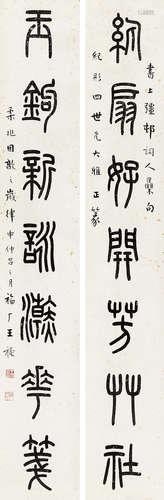 書上彊邨詞人集句
紈扇好開芳艸社
紀彤四世兄大雅正篆
玉鉤新詠澣華箋
柔兆困敦之歲律中仲呂之月福厂王禔